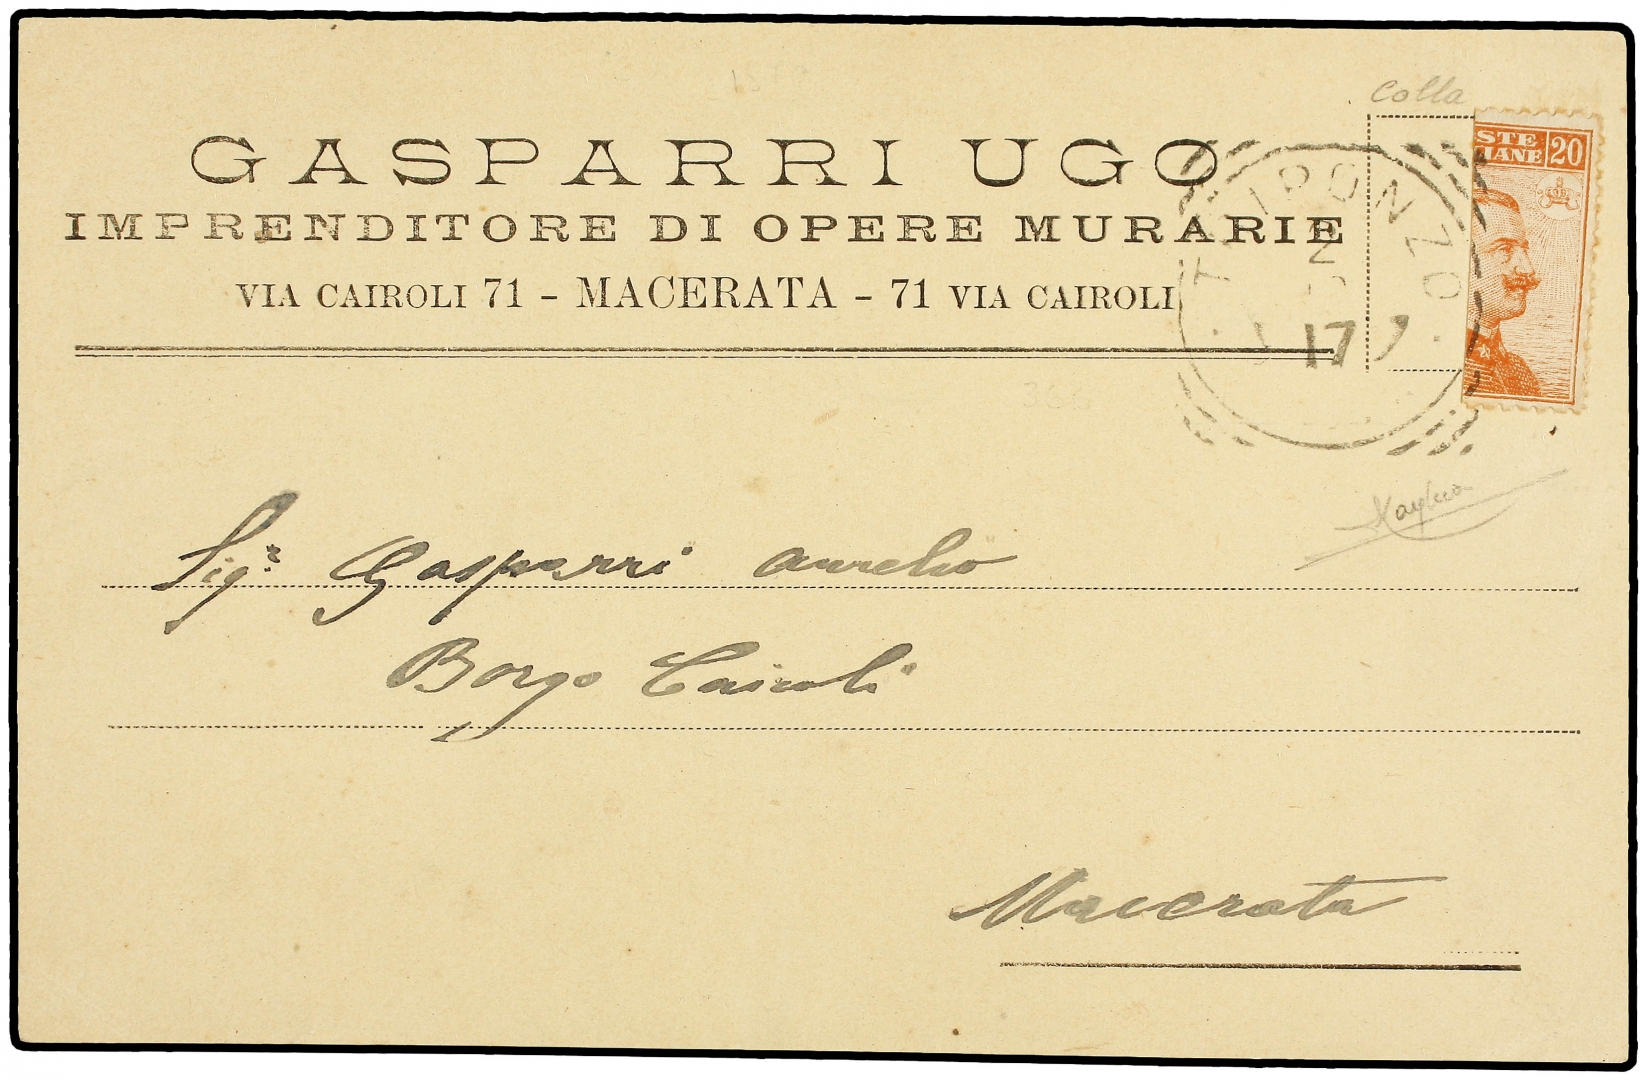 colla
GASPARRI UGO
IMPRENDITORE DI OPERE MURARIE
VIA CAIROLI 71 - MACERATA - 71 VIA CAIROLI
STE 20
IANE
TRIPONZO
17
Sigr Gasparri Aurelio
Borgo Cairoli
Macerata